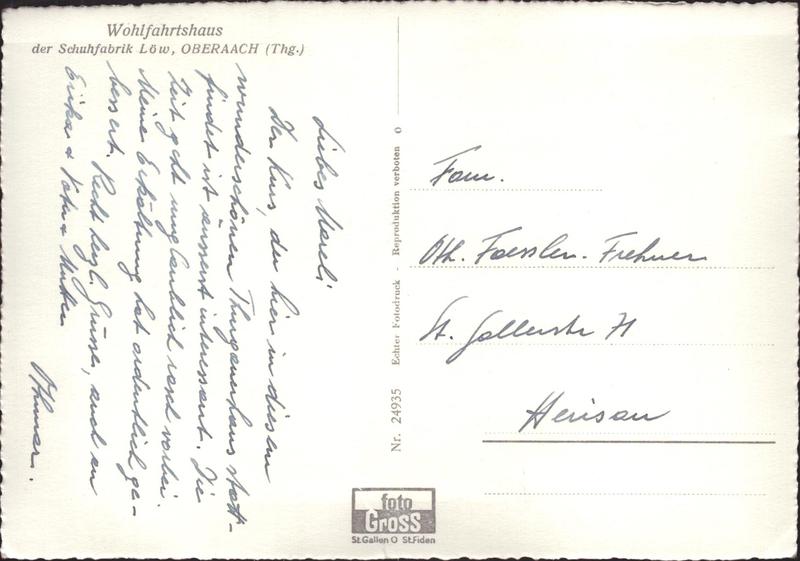 Wohlfahrtshaus
der Schuhfabrik Löw, OBERAACH (Thg.)
Liebes Mareli
Der Kurs, der hier in diesem
wunderschönen Thurgauerhaus statt-
findet ist äusserst interessant. Die
Zeit geht unglaublich rasch vorbei.
Meine Erkältung hat ordentlich ge-
bessert. Recht herzl. Grüsse, auch an
Erika & Vater & Mutter
Othmar.
Nr. 24935 Echter Fotodruck - Reproduktion verboten O
Fam.
Oth. Faessler-Frehner
St. Gallerstr 71
Herisau
foto
Gross
St.Gallen O St.Fiden